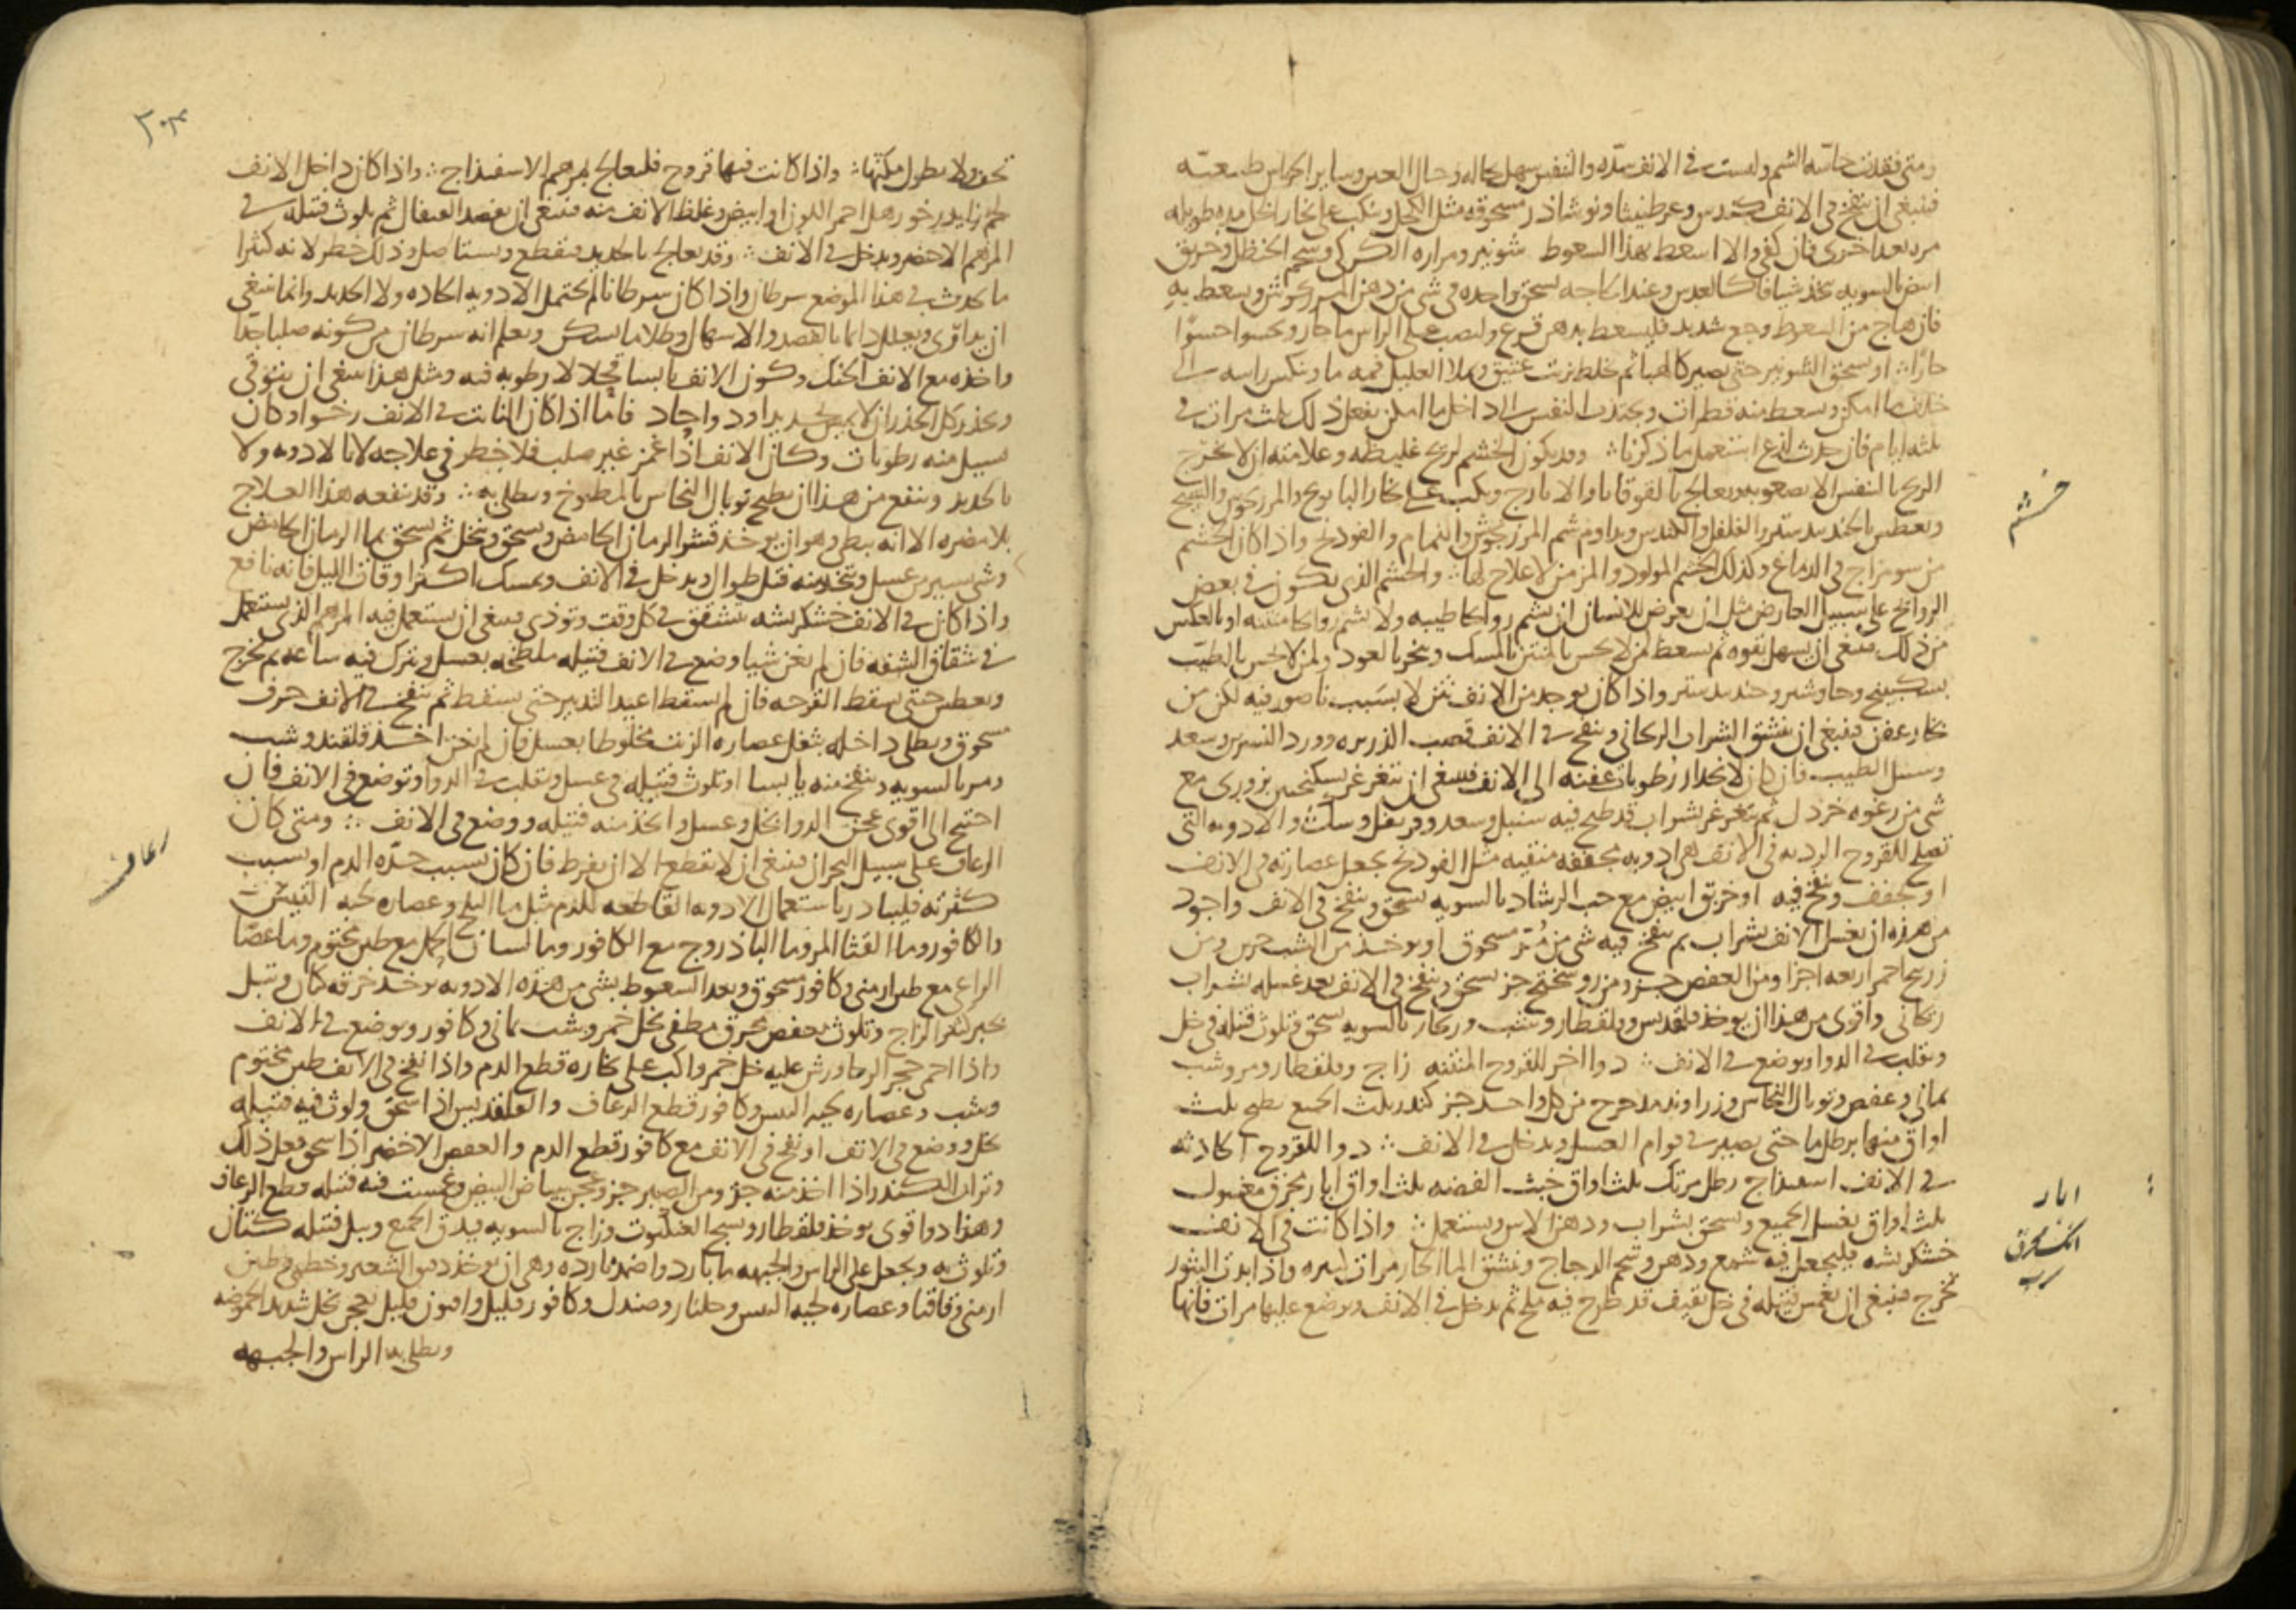 ومتى فقدت حاسه الشم وليست في الانف سده والنفس سهل بحاله وحال العين وساير الحواس طبيعته
فينبغي ان ينفخ في الانف كندس وعرطنيثا ونوشاذر مسحوقه مثل الكحل وينكب على بخار الخل مده طويله
مره بعد اخرى فان كفى والا اسعط بهذا السعوط شونيز ومراره الكركي وشحم الحنظل وخربق
ابيض بالسويه يتخذ شيافا كالعدس وعند الحاجه يسحق واحده في شي من دهن المرزنجوش ويسعط به
فان هاج من السعوط وجع شديد فليسعط بدهن قرع وليصب على الراس ما حار ويحسوا حسوا
حارا او يسحق الشونيز حتى يصير كالهبا ثم يخلط بزيت عتيق ويملا العليل فمه ما وينكس راسه الى
خلف ما امكن ويسعط منه قطرات ويجتذب النفس الى داخل ما امكن يفعل ذلك ثلث مرات في
ثلثه ايام فان حدث لذع استعمل ما ذكرنا وقد يكون الخشم لريح غليظه وعلامته ان لا تخرج
الريح بالنفس الا بصعوبه ويعالج بالقوقايا والايارج ويكب على بخار البابونج والمرزنجوش والشيح
ويعطس بالجندبيدستر والفلفل والكندس ويداوم شم المرزنجوش والنمام والفودنج واذا كان الخشم
من سو مزاج في الدماغ وكذلك الخشم المولود والمزمن لا علاج لها والخشم الذي يكون في بعض
الروايح على سبيل العارض مثل ان يعرض للانسان ان يشم روايحا طيبه ولا يشم روايحا منتنه او بالعكس
من ذلك فينبغي ان يسهل بقوه ثم يسعط من لا يحس بالمنتن بالمسك ويبخر بالعود ولمن لا يحس بالطيب
بسكبينج وجاوشير وجندبيدستر واذا كان يوجد من الانف نتن لا بسبب ناصور فيه لكن من
بخار عفن فينبغي ان ينشق الشراب الريحاني وينفخ في الانف قصب الذريره وورد النسرين وسعد
وسنبل الطيب فان كان لانحدار رطوبات عفنه الى الانف فينبغي ان يتغرغر بسكنجبين بزوري مع
شي من رغوه خردل ثم يتغرغر بشراب قد طبخ فيه سنبل وسعد وقرنفل وسك والادويه التي
تصلح للقروح الرديه في الانف هي ادويه مجففه منقيه مثل الفودنج يجعل عصارته في الانف
او يجفف وينفخ فيه او خربق ابيض مع حب الرشاد بالسويه يسحق وينفخ في الانف واجود
من هذه ان يغسل الانف بشراب ثم ينفخ فيه شي من مر مسحوق او يوخذ من الشب جزين ومن
زرنيخ احمر اربعه اجزا ومن العفص جزو ومن روسختج جز يسحق وينفخ في الانف بعد غسله بشراب
ريحاني واقوى من هذا ان يوخذ قلقديس وقلقطار وشب وزنجار بالسويه يسحق وتلوث فتيله في خل
وتقلب في الدوا ويوضع في الانف دوا اخر للقروح المنتنه زاج وقلقطار ومر وشب
يماني وعفص وتوبال النحاس وزراوند مدحرج من كل واحد جز كندر ثلث الجميع يطبخ ثلث
اواق منها برطل ما حتى يصير في قوام العسل ويدخل في الانف دوا للقروح الحادثه
في الانف اسفيداج رطل مرتك ثلث اواق خبث الفضه ثلث اواق ابار محرق مغسول
ثلث اواق يغسل الجميع ويسحق بشراب ودهن الاس ويستعمل واذا كانت في الانف
خشكريشه فليجعل فيه شمع ودهن وشحم الدجاج وينشق الما الحار مرات كثيره واذا بدت البثور
تخرج فينبغي ان تغمس فتيله في خل ثقيف قد طرح فيه ملح ثم يدخل في الانف ويوضع عليها مرات فانها
خشم
ابار
انك محرق
سرب
٣٠٤
تجف ولا يطول مكثها واذا كانت فيها قروح فليعالج بمرهم الاسفيذاج واذا كان داخل الانف
لحم زايد رخو رهل احمر اللون او ابيض وغلظ الانف منه فينبغي ان يفصد القيفال ثم يلوث فتيله في
المرهم الاخضر ويدخل في الانف وقد يعالج بالحديد فيقطع ويستاصل وذلك خطر لانه كثيرا
ما يحدث في هذا الموضع سرطان واذا كان سرطانا لم يحتمل الادويه الحاده ولا الحديد وانما ينبغي
ان يداوى ويعلل دايما بالفصد والاسهال وطلا ما يسكن ويعلم انه سرطان من كونه صلبا جدا
واخذه مع الانف الحنك وكون الانف يابسا قحلا لا رطوبه فيه ومثل هذا ينبغي ان يتوقى
ويحذر كل الحذر ان لا يمس بحديد او دوا حاد فاما اذا كان النابت في الانف رخوا وكان
يسيل منه رطوبات وكان الانف اذا غمز غير صلب فلا خطر في علاجه لا بالادويه ولا
بالحديد وينفع من هذا ان يطبخ توبال النحاس بالمطبوخ ويطلى به وقد ينفعه هذا العلاج
بلا مضره الا انه يبطي وهو ان يوخذ قشر الرمان الحامض ويسحق وينخل ثم يسحق بما الرمان الحامض
وشي يسير من عسل ويتخذ منه فتل طوال ويدخل في الانف ويمسك اكثر اوقات الليل فانه نافع
واذا كان في الانف خشكريشه تتشقق في كل وقت وتوذي فينبغي ان يستعمل فيه المرهم الذي يستعمل
في شقاق الشفه فان لم يغن شيا وضع في الانف فتيله ملطخه بعسل وترك فيه ساعه ثم يخرج
ويعطس حتى يسقط القرحه فان لم يسقط اعيد التدبير حتى يسقط ثم ينفخ في الانف خزف
مسحوق ويطلى داخله بثفل عصاره الزيت مخلوطا بعسل فان لم يغن اخذ قلقند وشب
ومر بالسويه وينفخ منه يابسا او تلوث فتيله في عسل وتقلب في الدوا وتوضع في الانف فان
احتيج الى اقوى عجن الدوا بخل وعسل واتخذ منه فتيله ووضع في الانف ومتى كان
الرعاف على سبيل البحران فينبغي ان لا يقطع الا ان يفرط فان كان بسبب حده الدم او بسبب
كثرته فليبادر باستعمال الادويه القاطعه للدم مثل ما البلح وعصاره لحيه التيس
والكافور وما القثا المر وما الباذروج مع الكافور وما لسان الحمل مع طين مختوم وما عصا
الراعي مع طين ارمني وكافور مسحوق وبعد السعوط بشي من هذه الادويه يوخذ خرقه كتان وتبل
بحبر كثير الزاج وتلوث بعفص محرق مطفي بخل خمر وشب يماني وكافور ويوضع في الانف
واذا احمي حجر الرحا ورش عليه خل خمر واكب على بخاره قطع الدم واذا نفخ في الانف طين مختوم
وشب وعصاره لحيه التيس وكافور قطع الرعاف والقلقديس اذا سحق ولوث فيه فتيله
بخل ووضع في الانف او نفخ في الانف مع كافور قطع الدم والعفص الاخضر اذا سحق فعل ذلك
وتراب الكندر اذا اخذ منه جز ومن الصبر جز وعجن ببياض البيض وغمست فيه فتيله قطع الرعاف
وهذا دوا قوي يوخذ قلقطار ونسج العنكبوت وزاج بالسويه فيدق الجميع وتبل فتيله كتان
وتلوث به ويجعل على الراس والجبهه ما بارد واضمده بارده وهي ان يوخذ دقيق الشعير وخطمي وطين
ارمني وقاقيا وعصاره لحيه التيس وجلنار وصندل وكافور قليل وافيون قليل يعجن بخل شديد الحموضه
ويطلى به الراس والجبهه
رعاف